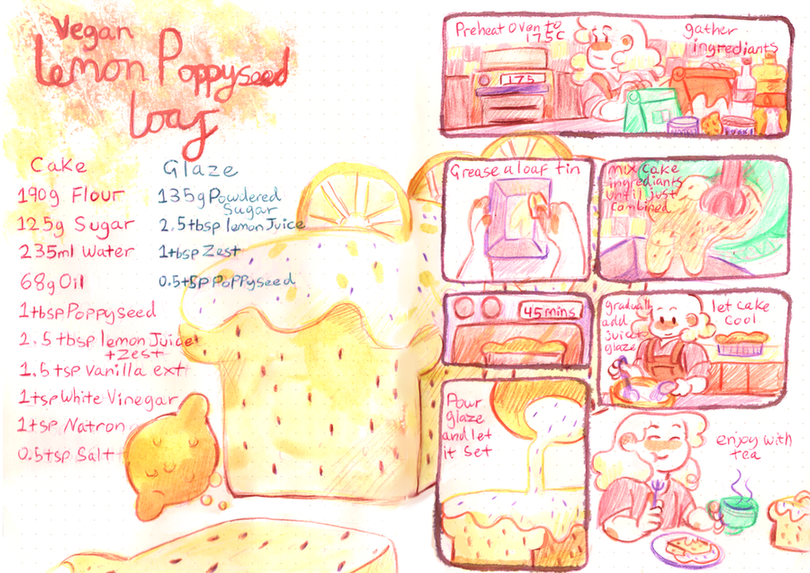 Vegan
Lemon Poppyseed
Loaf
Cake
190g Flour
125g Sugar
235ml Water
68g Oil
1tbsp Poppyseed
2.5tbsp lemon Juice
+ Zest
1.5tsp Vanilla ext
1tsp White Vinegar
1tsp Natron
0.5tsp Salt
Glaze
135g Powdered
Sugar
2.5tbsp lemon Juice
1tbsp Zest
0.5tsp Poppyseed
Preheat Oven to
175C
gather
ingrediants
175
Grease a loaf tin
mix Cake
ingrediants
until just
combined
45 mins
gradually
add
Juice to
glaze
let cake
cool
Pour
glaze
and let
it set
enjoy with
tea